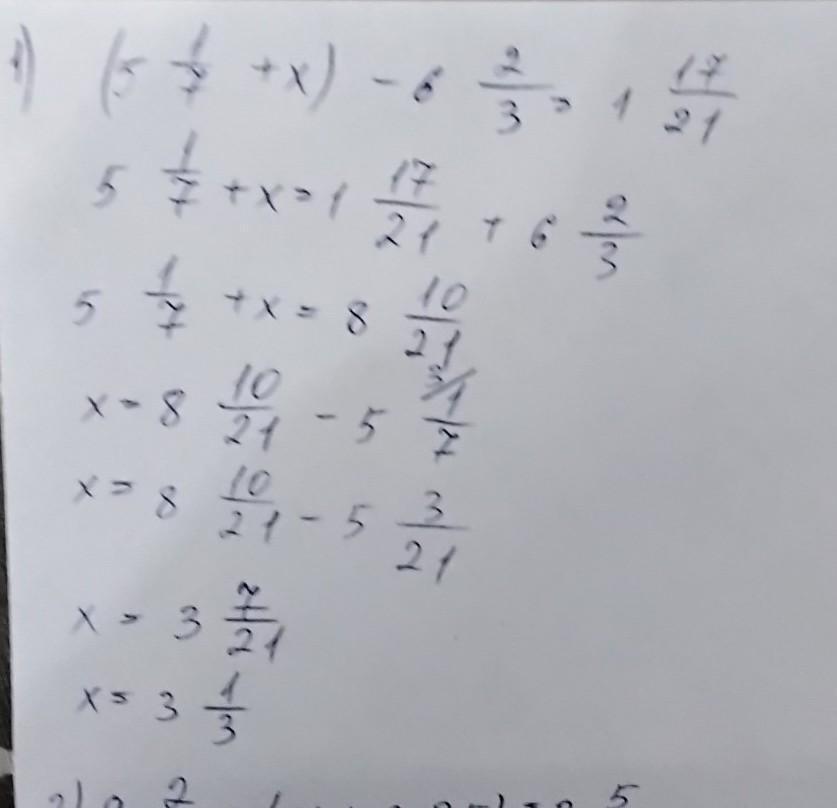 1) (5 1/7 + x) - 6 2/3 = 1 17/21
5 1/7 + x = 1 17/21 + 6 2/3
5 1/7 + x = 8 10/21
x = 8 10/21 - 5 3/ 1/7
x = 8 10/21 - 5 3/21
x = 3 7/21
x = 3 1/3